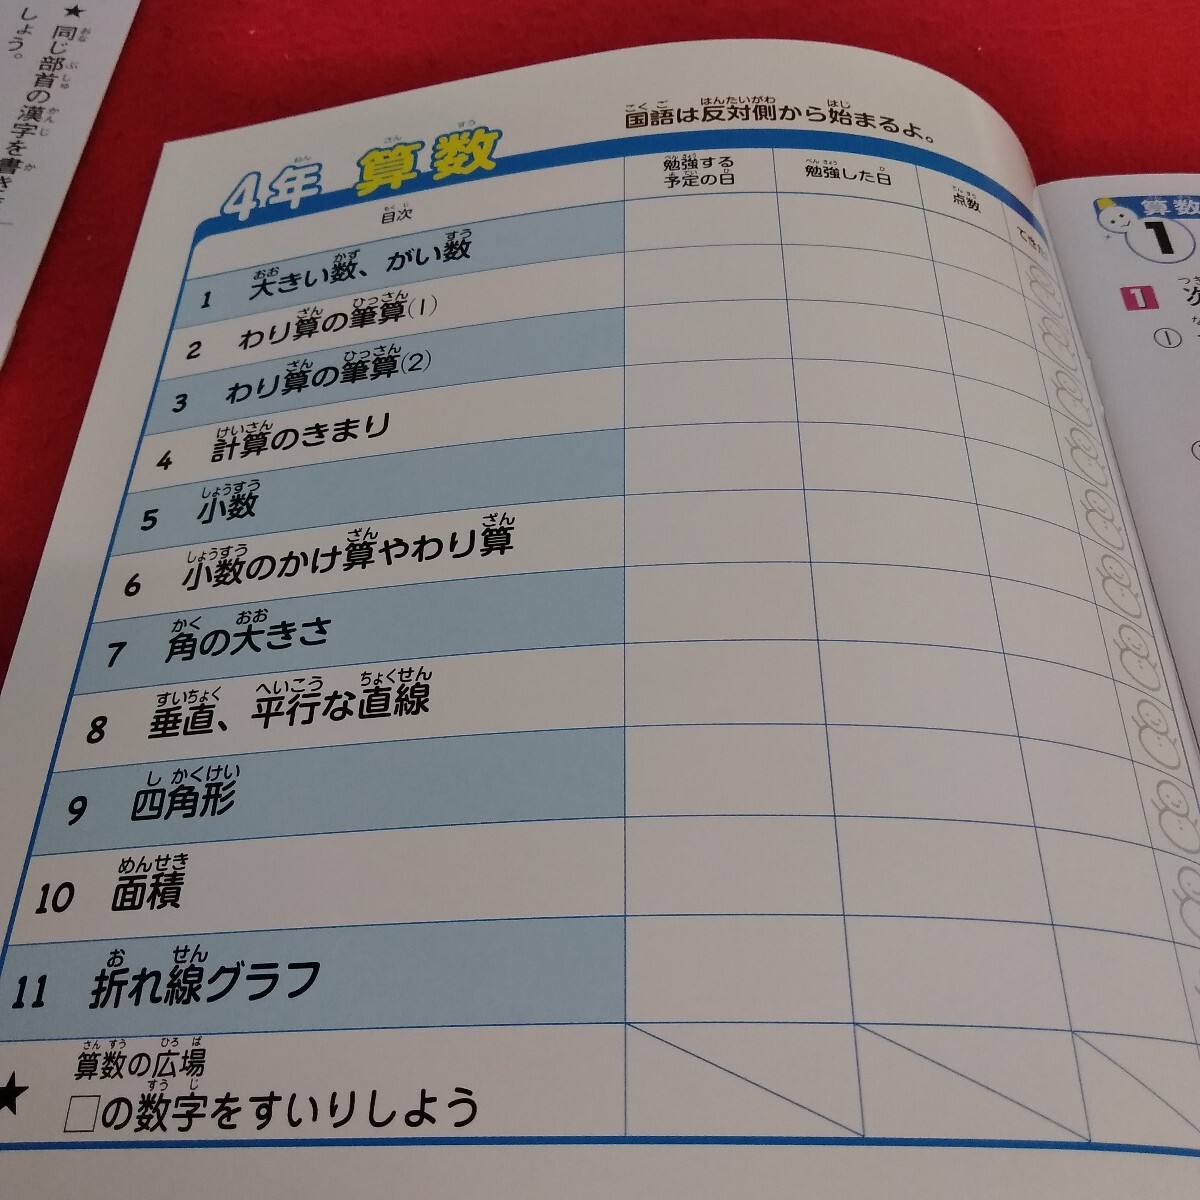 ★ 同じ部首の漢字を書き
しょう。
国語は反対側から始まるよ。
4年 算数
目次
勉強する
予定の日
勉強した日
点数
できた
1 大きい数、がい数
2 わり算の筆算(1)
3 わり算の筆算(2)
4 計算のきまり
5 小数
6 小数のかけ算やわり算
7 角の大きさ
8 垂直、平行な直線
9 四角形
10 面積
11 折れ線グラフ
算数の広場
★ □の数字をすいりしよう
算数
1
1 次
①